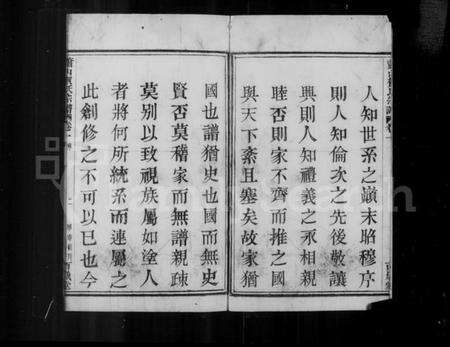 人知世系之巔末昭穆序
則人知倫次之先後敬讓
興則人知禮義之永相親
睦否則家不齊而推之國
與天下紊且塞矣故家猶
國也譜猶史也國而無史
賢否莫稽家而無譜親疎
莫別以致視族屬如塗人
者將何所統系而連屬之
此創修之不可以已也今